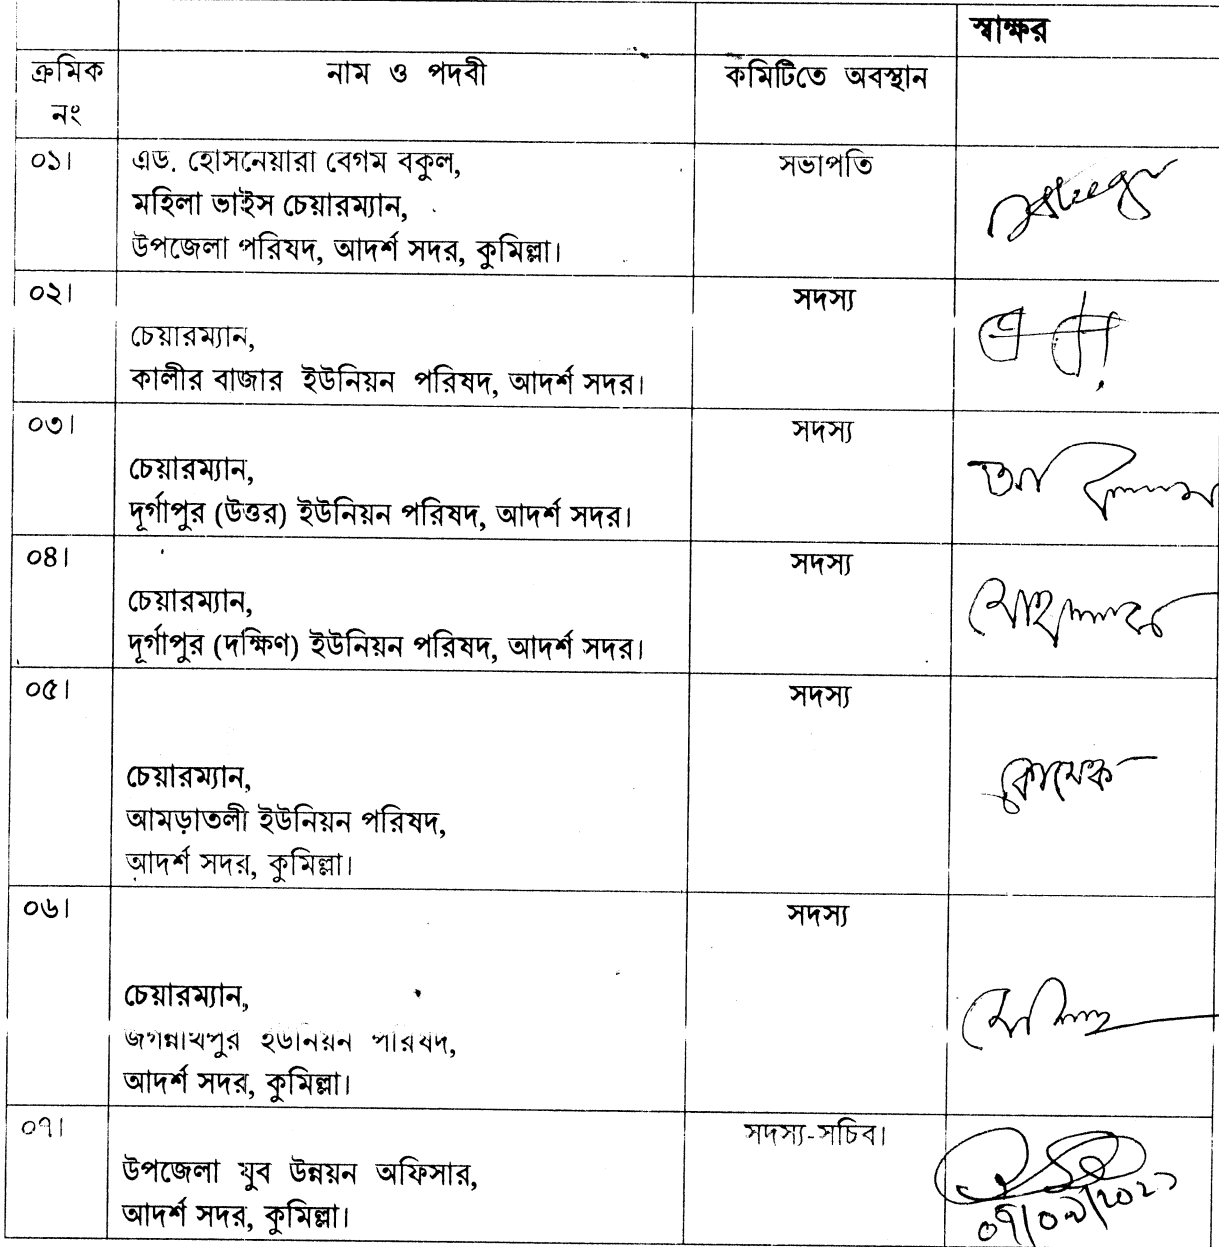 স্বাক্ষর
ক্রমিক নাম ও পদবী কমিটিতে অবস্থান
নং
০১। এড. হোসনেয়ারা বেগম বকুল, সভাপতি
মহিলা ভাইস চেয়ারম্যান,
উপজেলা পরিষদ, আদর্শ সদর, কুমিল্লা।
০২। সদস্য
চেয়ারম্যান,
কালীর বাজার ইউনিয়ন পরিষদ, আদর্শ সদর।
০৩। সদস্য
চেয়ারম্যান,
দূর্গাপুর (উত্তর) ইউনিয়ন পরিষদ, আদর্শ সদর।
০৪। সদস্য
চেয়ারম্যান,
দূর্গাপুর (দক্ষিণ) ইউনিয়ন পরিষদ, আদর্শ সদর।
০৫। সদস্য
চেয়ারম্যান,
আমড়াতলী ইউনিয়ন পরিষদ,
আদর্শ সদর, কুমিল্লা।
০৬। সদস্য
চেয়ারম্যান,
জগন্নাথপুর ইউনিয়ন পরিষদ,
আদর্শ সদর, কুমিল্লা।
০৭। সদস্য-সচিব।
উপজেলা যুব উন্নয়ন অফিসার,
আদর্শ সদর, কুমিল্লা।